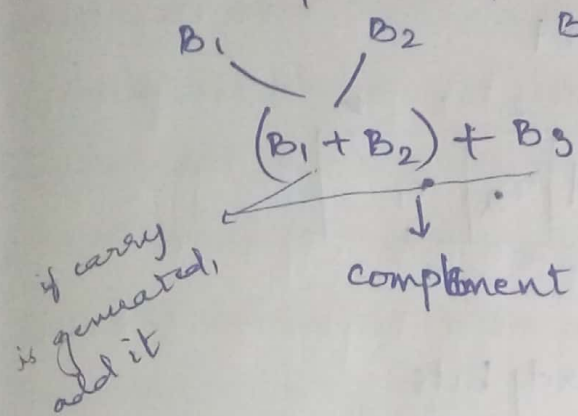 B
B1 B2
(B1 + B2) + B3
if carry
is generated,
add it
complement